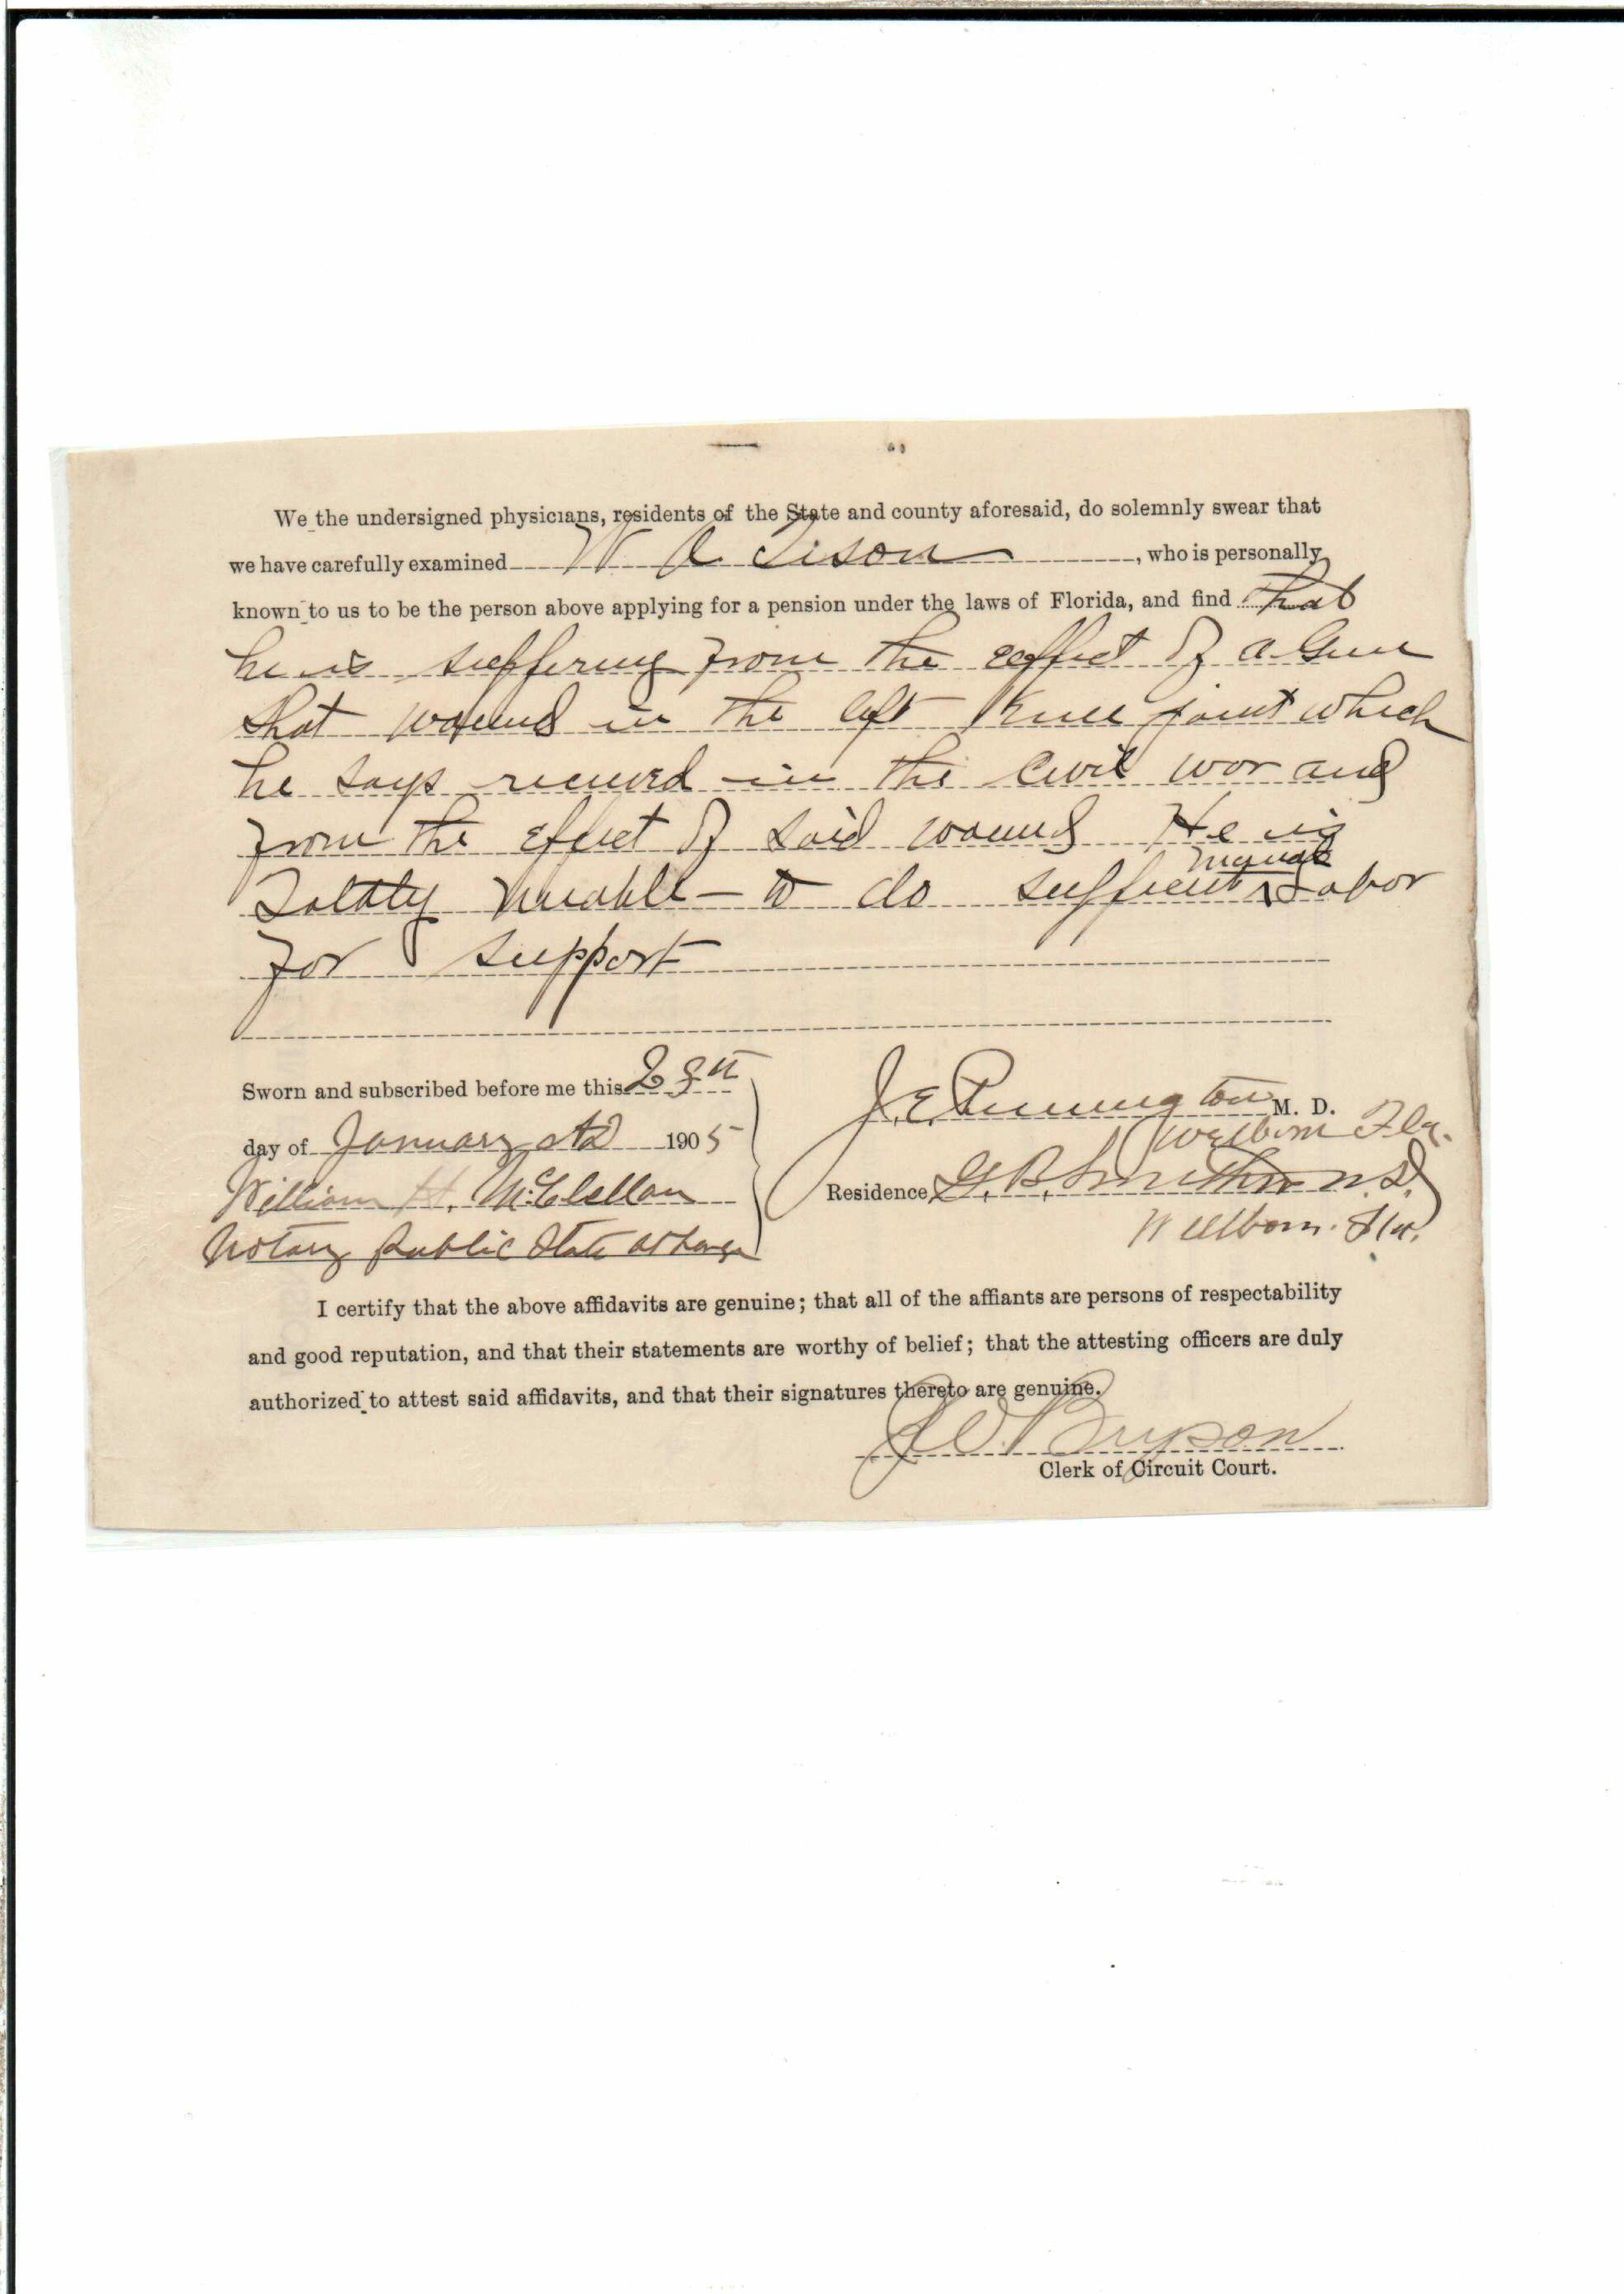 We the undersigned physicians, residents of the State and county aforesaid, do solemnly swear that
we have carefully examined W A Tison, who is personally
known to us to be the person above applying for a pension under the laws of Florida, and find that
he is suffering from the effect of a Gun
shot wound in the left Knee joint which
he says received in the Civil war and
from the effect of said wound He is
Totally unable - to do sufficient manual Labor
for support
Sworn and subscribed before me this 28th
day of January AD 1905
William H. McClellan
Notary Public State at Large
J. E. Pennington M. D.
Welborn Fla.
Residence G. B. Smithson M.D.
Wellborn. Fla.
I certify that the above affidavits are genuine; that all of the affiants are persons of respectability
and good reputation, and that their statements are worthy of belief; that the attesting officers are duly
authorized to attest said affidavits, and that their signatures thereto are genuine.
Bryson
Clerk of Circuit Court.